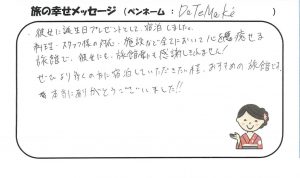 旅の幸せメッセージ (ペンネーム : DaTeMaKe )
彼女に誕生日プレゼントとして、宿泊しました。
料理・スタッフ様の対応、施設など全てにおいて心を癒せる
旅館で、彼女にも、旅館様にも感謝しきれません!
ぜひより多くの方に宿泊していただきたい程、おすすめの旅館です。
本当にありがとうございました!!